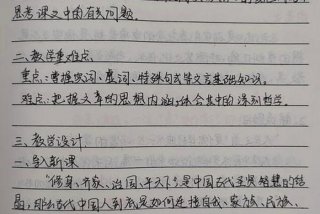 思考课文中的有关问题.
二、教学重难点
重点:掌握实词、虚词、特殊句式等文言基础知识.
难点:把握文章的思想内涵,体会其中的深刻哲学.
三、教学设计
一、导入新课
"修身、齐家、治国、平天下"是中国古代圣贤智慧的结
晶,那么古代中国人到底是如何连接自我、家族、民族、